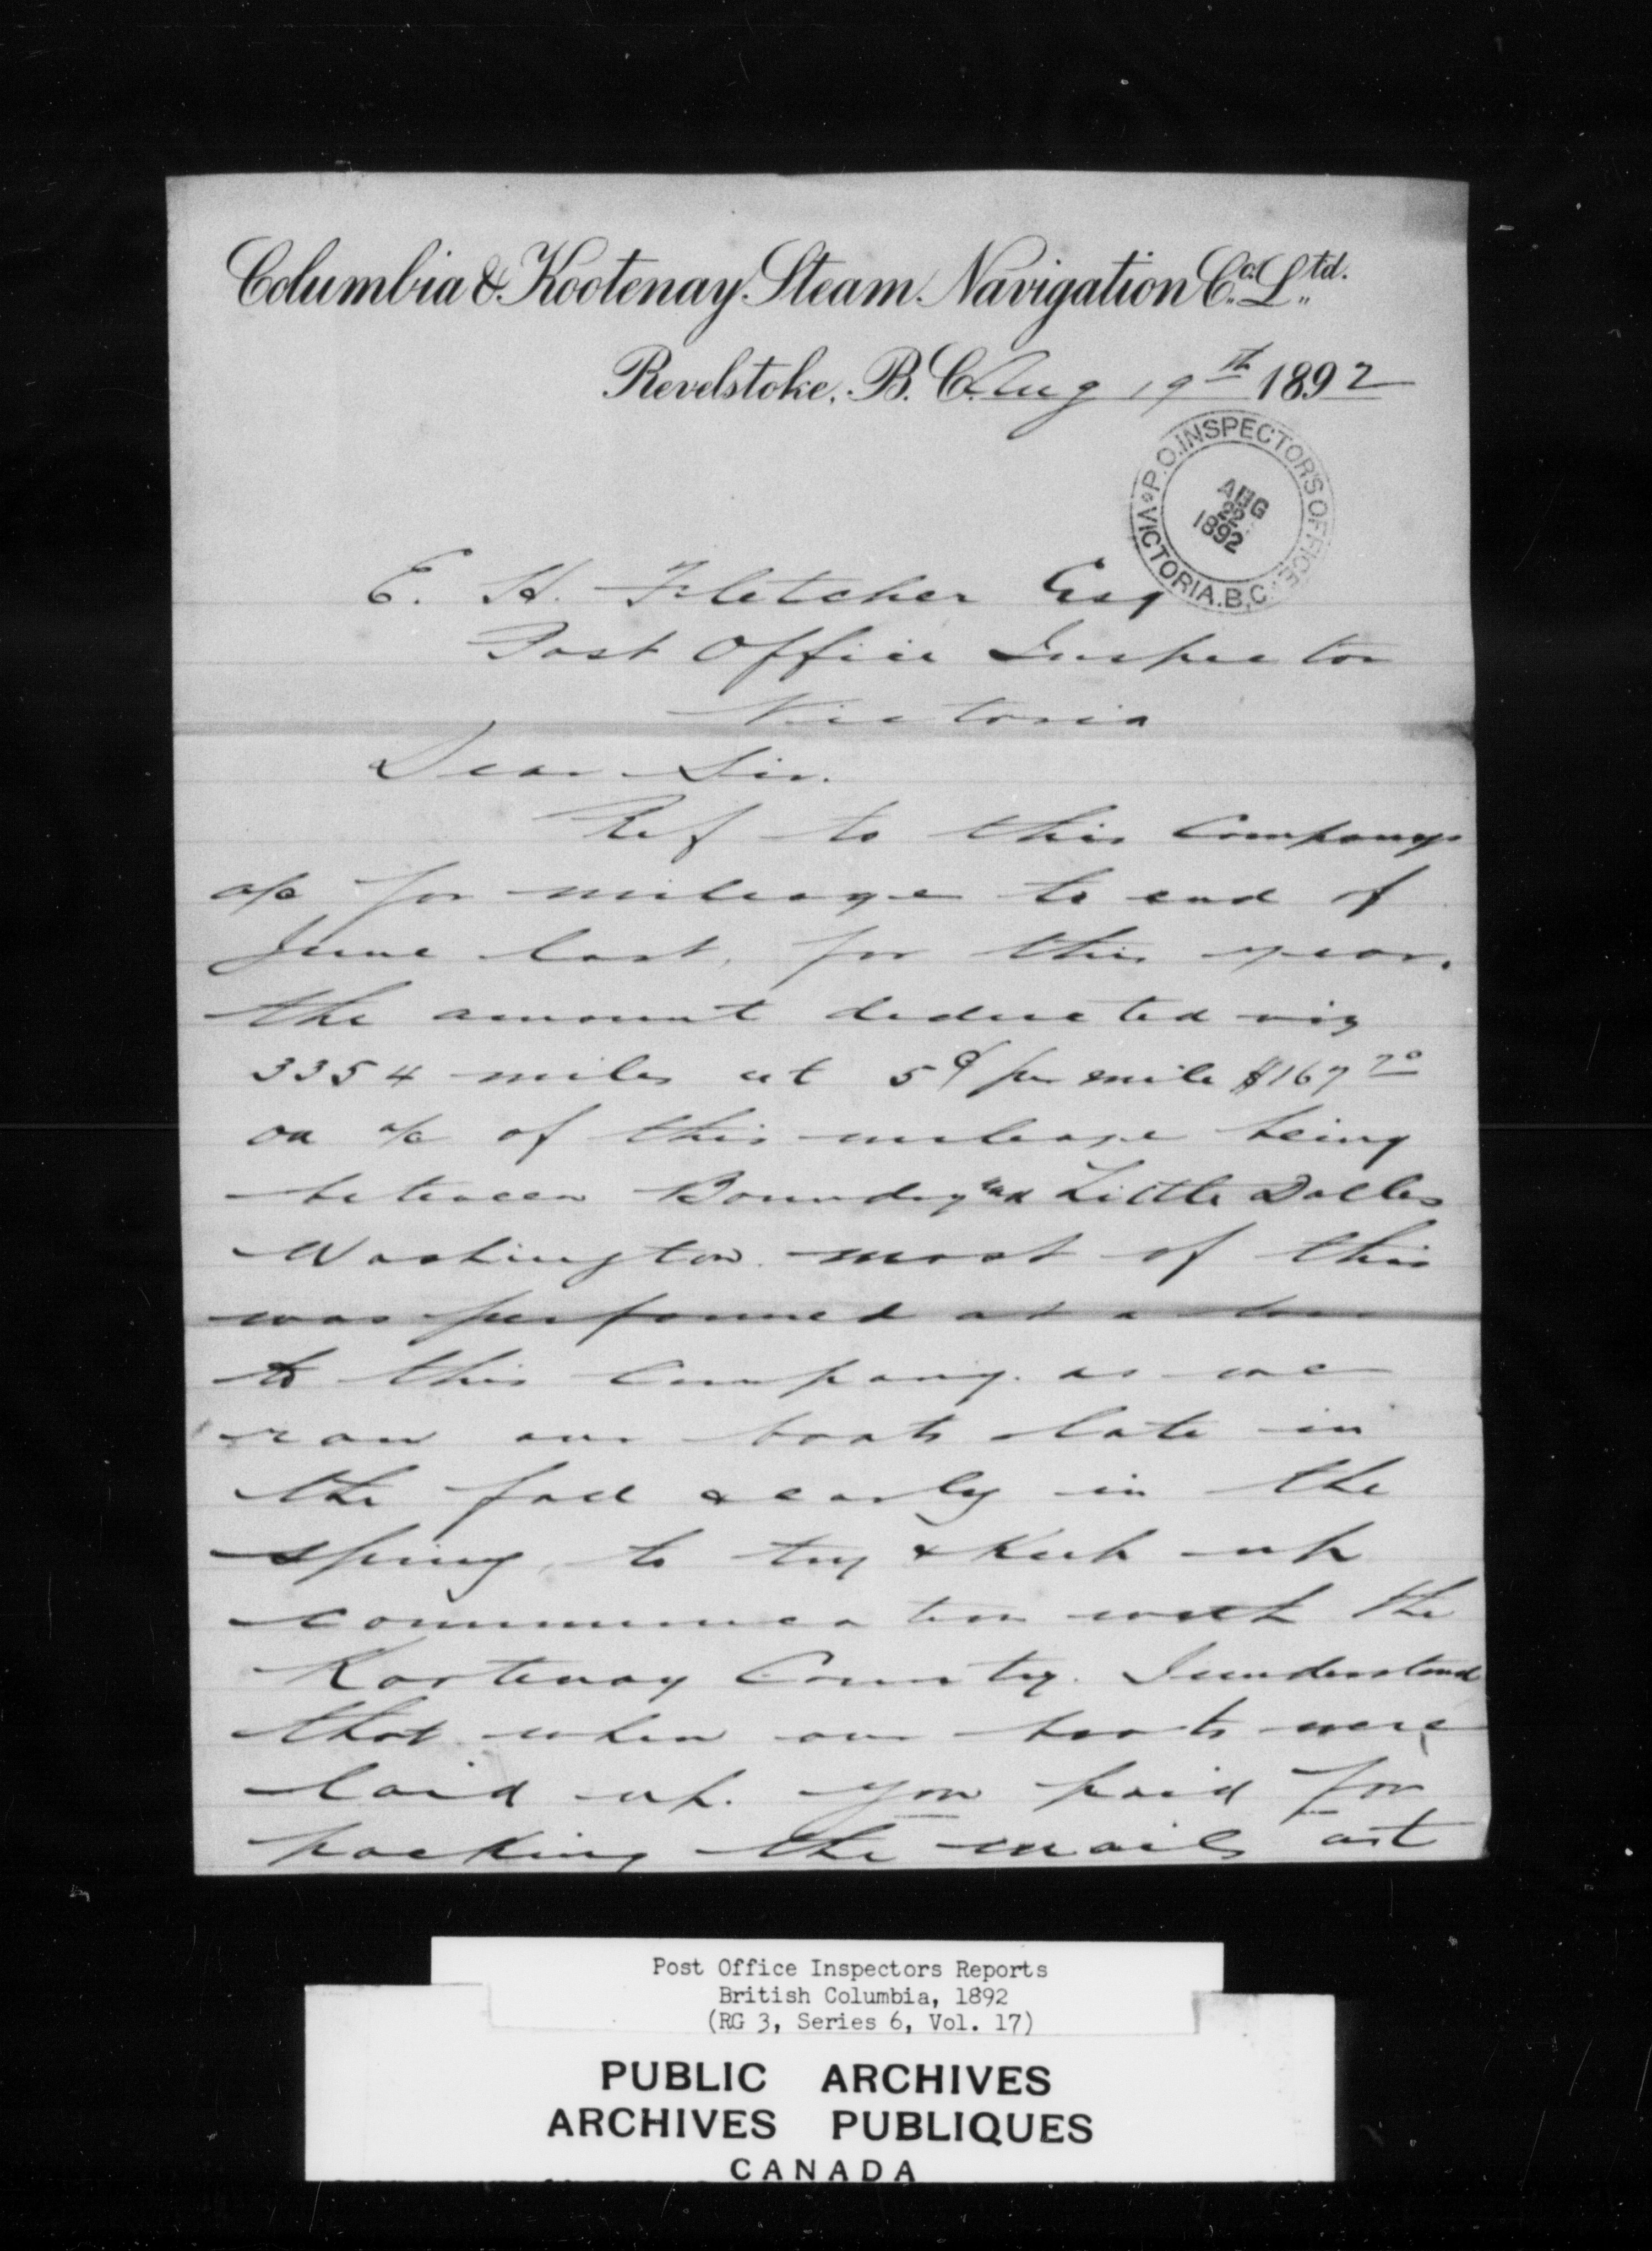 Columbia & Kootenay Steam Navigation Co. Ltd.
Revelstoke, B.C. Aug 19th 1892
P.O. INSPECTOR'S OFFICE
AUG
22
1892
VICTORIA. B.C.
E. H. Fletcher Esq
Post Office Inspector
Victoria
Dear Sir.
Ref to this Companys
a/c for mileage to end of
June last, for this year.
the amount deducted viz
3354 miles at 5¢ per mile $167 70
on a/c of this mileage being
between Boundry and Little Dalles
Washington. most of this
was performed at a loss
to this Company. as we
ran our boats late in
the fall & early in the
spring, to try & Keep up
communication with the
Kootenay Country. I understand
that when our boats were
laid up. you paid for
packing the mails at
Post Office Inspectors Reports
British Columbia, 1892
(RG 3, Series 6, Vol. 17)
PUBLIC ARCHIVES
ARCHIVES PUBLIQUES
CANADA